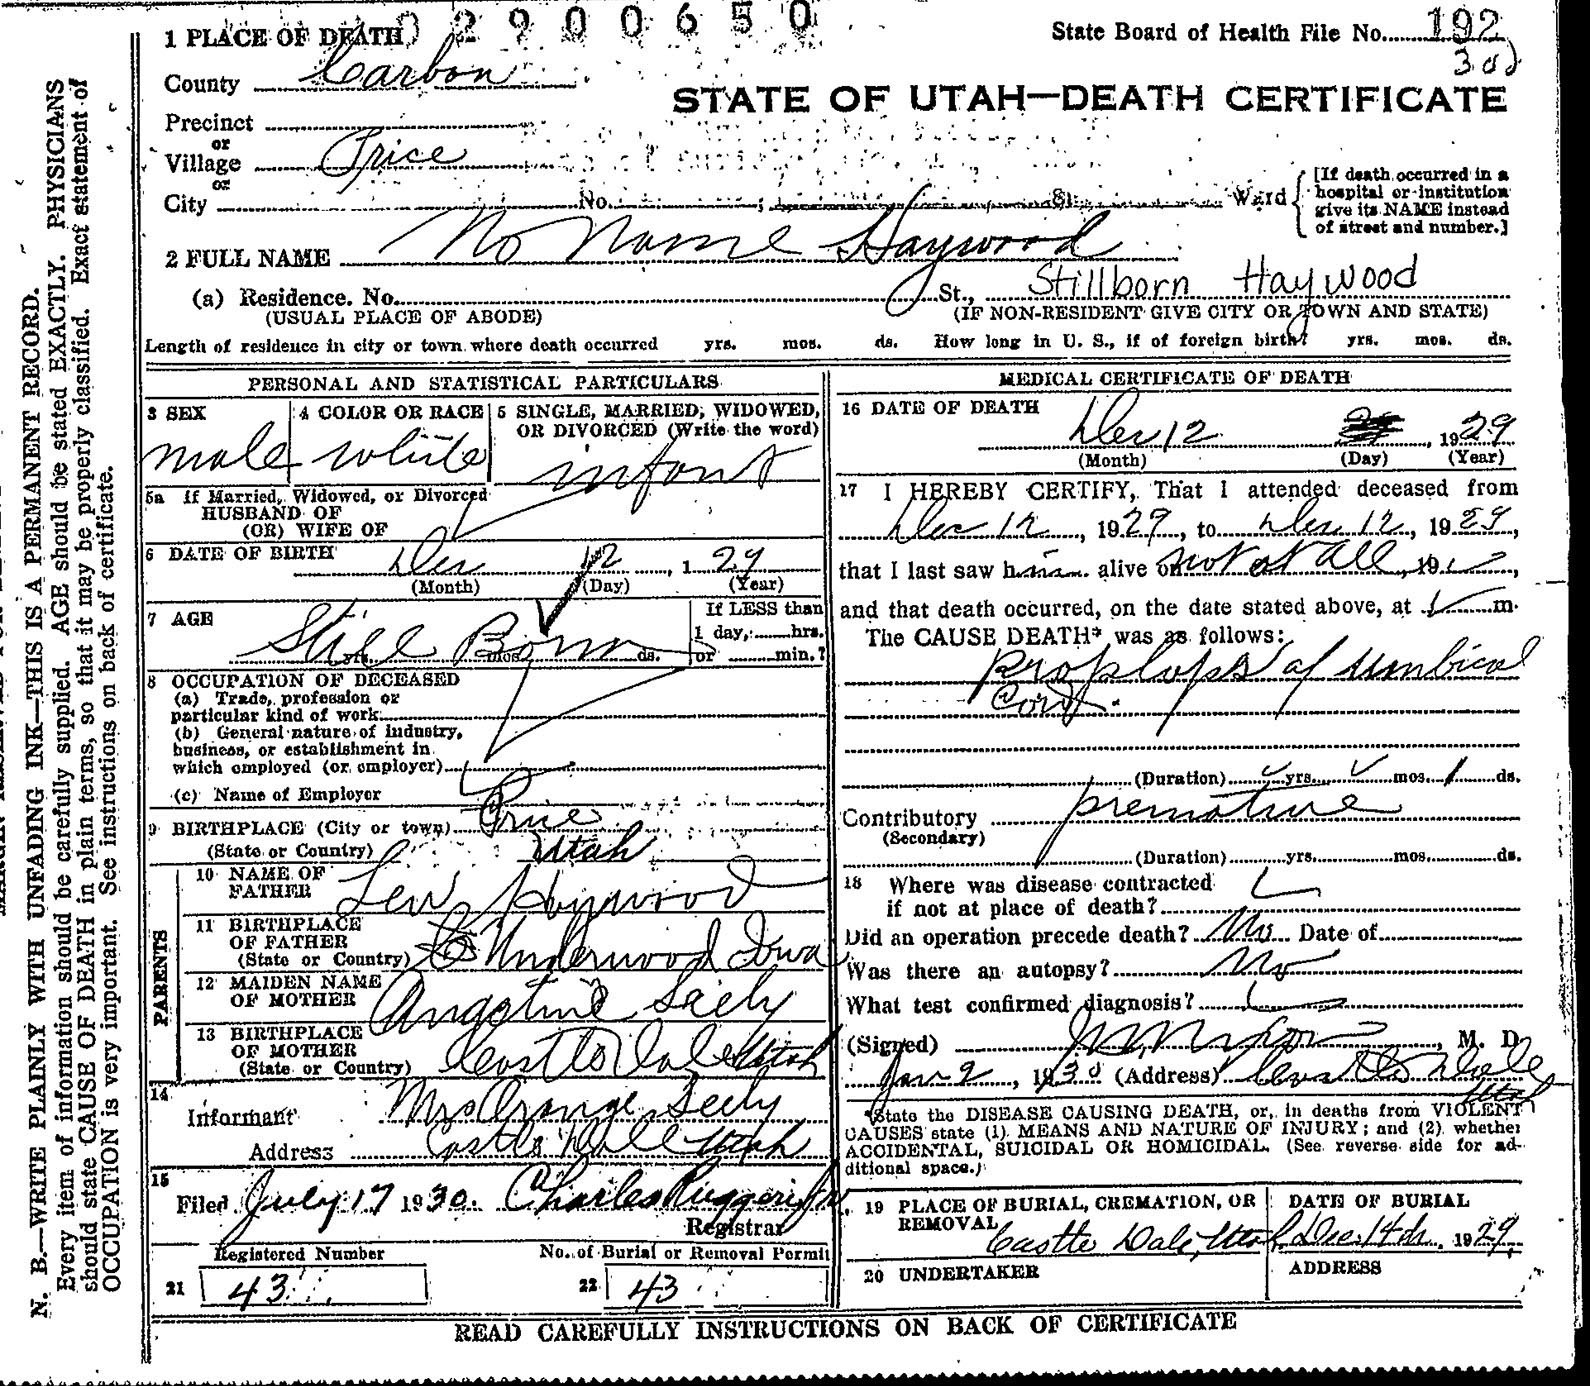 2900650
1 PLACE OF DEATH
State Board of Health File No. 192
County Carbon
STATE OF UTAH—DEATH CERTIFICATE
Precinct
or
Village Price
or
City No. ; St. Ward
[If death occurred in a
hospital or institution
give its NAME instead
of street and number.]
2 FULL NAME No Name Haywood
(a) Residence. No. St., Stillborn Haywood
(USUAL PLACE OF ABODE) (IF NON-RESIDENT GIVE CITY OR TOWN AND STATE)
Length of residence in city or town where death occurred yrs. mos. ds. How long in U. S., if of foreign birth? yrs. mos. ds.
PERSONAL AND STATISTICAL PARTICULARS
3 SEX 4 COLOR OR RACE 5 SINGLE, MARRIED, WIDOWED,
OR DIVORCED (Write the word)
male white infant
5a If Married, Widowed, or Divorced
HUSBAND OF
(OR) WIFE OF
6 DATE OF BIRTH Dec 12, 1 29
(Month) (Day) (Year)
7 AGE If LESS than
Still Born 1 day, hrs.
yrs. mos. ds. or min.?
8 OCCUPATION OF DECEASED
(a) Trade, profession or
particular kind of work
(b) General nature of industry,
business, or establishment in
which employed (or employer)
(c) Name of Employer
9 BIRTHPLACE (City or town) Price
(State or Country) Utah
PARENTS
10 NAME OF
FATHER Haywood
11 BIRTHPLACE
OF FATHER
(State or Country) Underwood Iowa
12 MAIDEN NAME
OF MOTHER Angeline Seely
13 BIRTHPLACE
OF MOTHER
(State or Country) Castle Dale Utah
14
Informant Mrs Orange Seely
Address Castle Dale Utah
15
Filed July 17 1930. Charles Ruggeri Jr
Registrar
Registered Number No. of Burial or Removal Permit
21 43 22 43
MEDICAL CERTIFICATE OF DEATH
16 DATE OF DEATH
Dec 12, 1929
(Month) (Day) (Year)
17 I HEREBY CERTIFY, That I attended deceased from
Dec 12, 1929, to Dec 12, 1929,
that I last saw him alive on not at all, 19
and that death occurred, on the date stated above, at m.
The CAUSE DEATH* was as follows:
Proplaps of Umbical
Cord.
(Duration) yrs. mos. 1 ds.
Contributory premature
(Secondary)
(Duration) yrs. mos. ds.
18 Where was disease contracted
if not at place of death?
Did an operation precede death? No Date of
Was there an autopsy? No
What test confirmed diagnosis?
(Signed) , M. D.
Jan 2, 1930 (Address) Castle Dale
Utah
*State the DISEASE CAUSING DEATH, or, in deaths from VIOLENT
CAUSES state (1) MEANS AND NATURE OF INJURY; and (2) whether
ACCIDENTAL, SUICIDAL OR HOMICIDAL. (See reverse side for ad-
ditional space.)
19 PLACE OF BURIAL, CREMATION, OR
REMOVAL Castle Dale, Utah
DATE OF BURIAL
Dec 14th, 1929
20 UNDERTAKER ADDRESS
READ CAREFULLY INSTRUCTIONS ON BACK OF CERTIFICATE
N. B.—WRITE PLAINLY WITH UNFADING INK—THIS IS A PERMANENT RECORD.
Every item of information should be carefully supplied. AGE should be stated EXACTLY. PHYSICIANS
should state CAUSE OF DEATH in plain terms, so that it may be properly classified. Exact statement of
OCCUPATION is very important. See instructions on back of certificate.